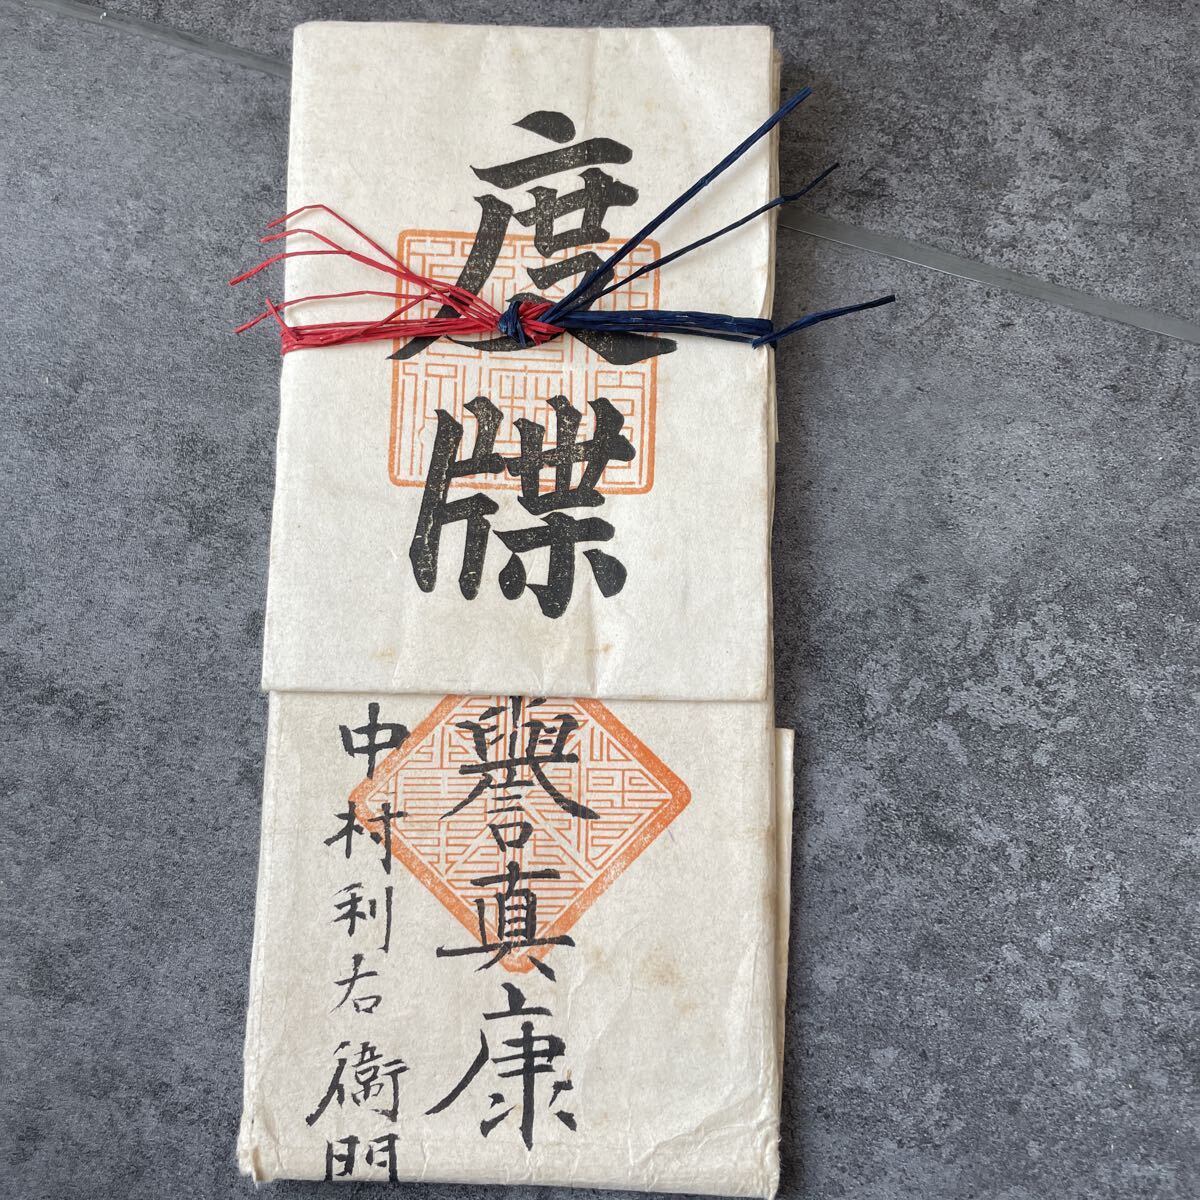 度牒
譽真康
中村利右衛門